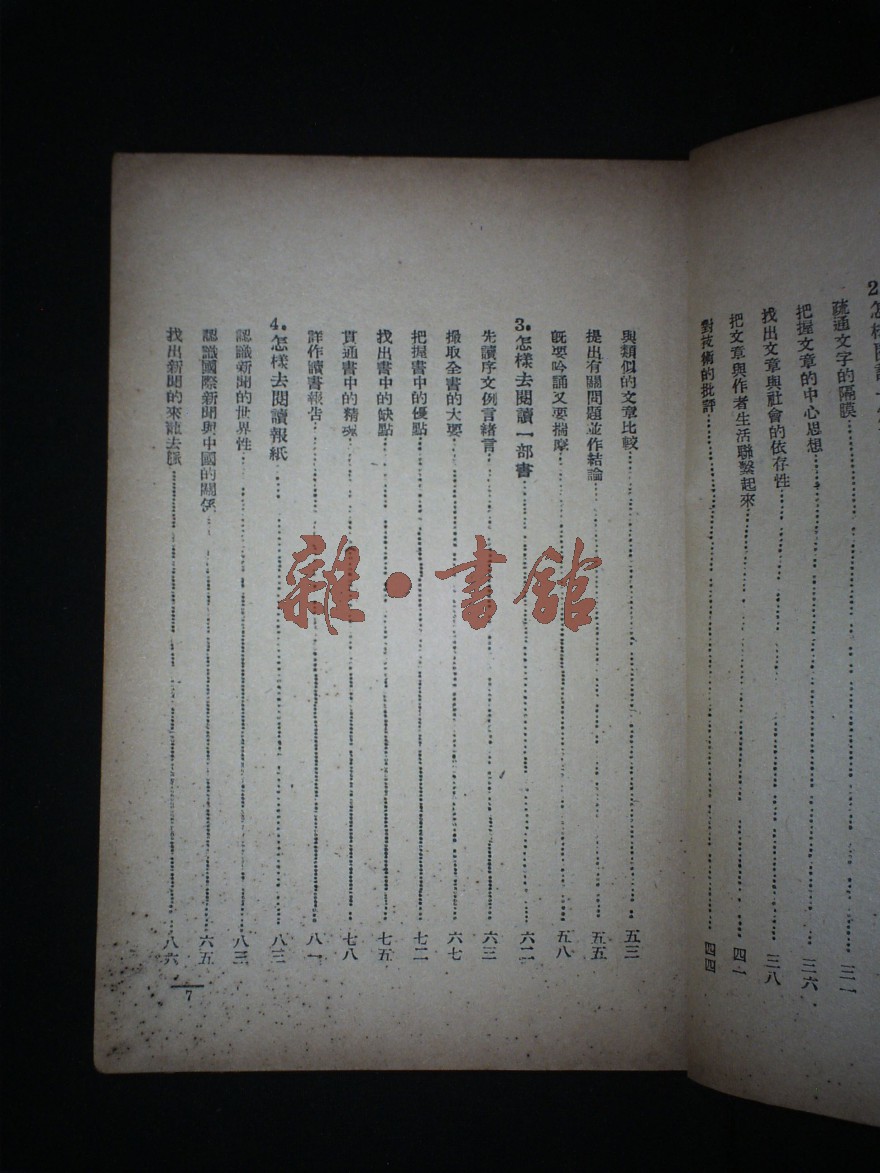 疏通文字的隔膜 三一
把握文章的中心思想 三六
找出文章與社會的依存性 三八
把文章與作者生活聯繫起來 四一
對技術的批評 四四
與類似的文章比較 五三
提出有關問題並作結論 五五
旣要吟誦又要揣摩 五八
3.怎樣去閱讀一部書 六二
先讀序文例言緒言 六三
撮取全書的大要 六七
把握書中的優點 七二
找出書中的缺點 七五
貫通書中的精魂 七八
詳作讀書報告 八一
4.怎樣去閱讀報紙 八三
認識新聞的世界性 八三
認識國際新聞與中國的關係 六五
找出新聞的來龍去脈 八六
7
雜·書館